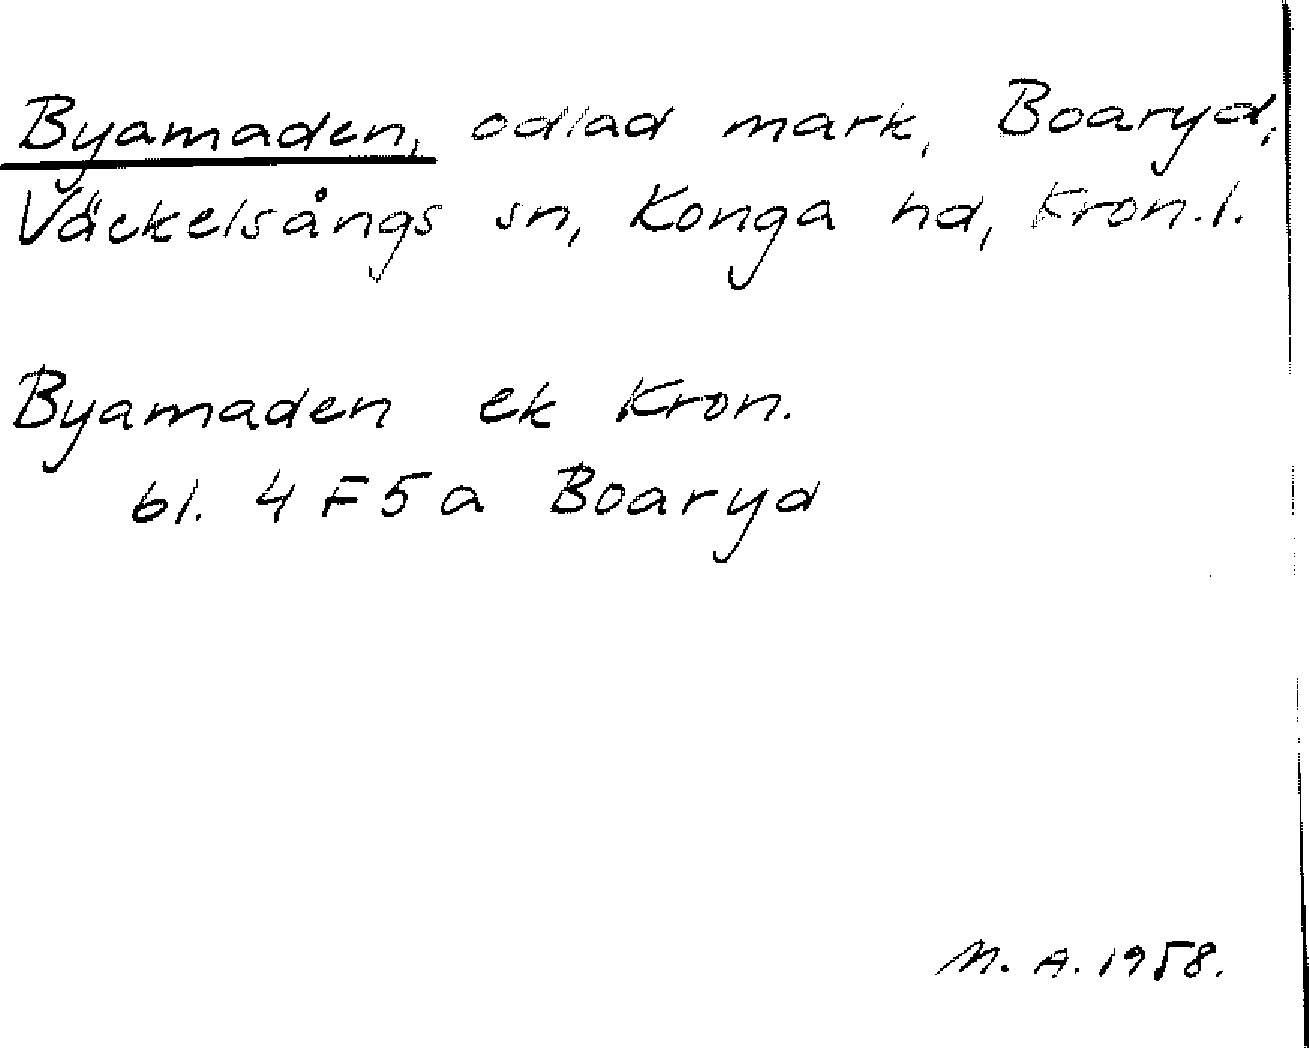 Byamaden, odlad mark, Boaryd,
Väckelsångs sn, Konga hd, Kron.l.
Byamaden ek Kron.
bl. 4 F 5 a Boaryd
M. A. 1958.